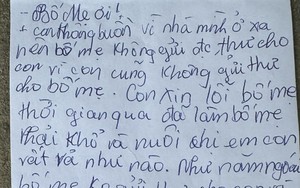 - Bố Mẹ ơi!
+ con thông buồn vì nhà mình ở xa
nên bố mẹ không gửi đc thư cho
con vì con cũng không gửi thư
cho bố mẹ. Con xin lỗi bố mẹ
thời gian qua đã làm bố mẹ
phải khổ và nuôi chị em con
vất vả như nào. Như năm ngoái
bố mẹ